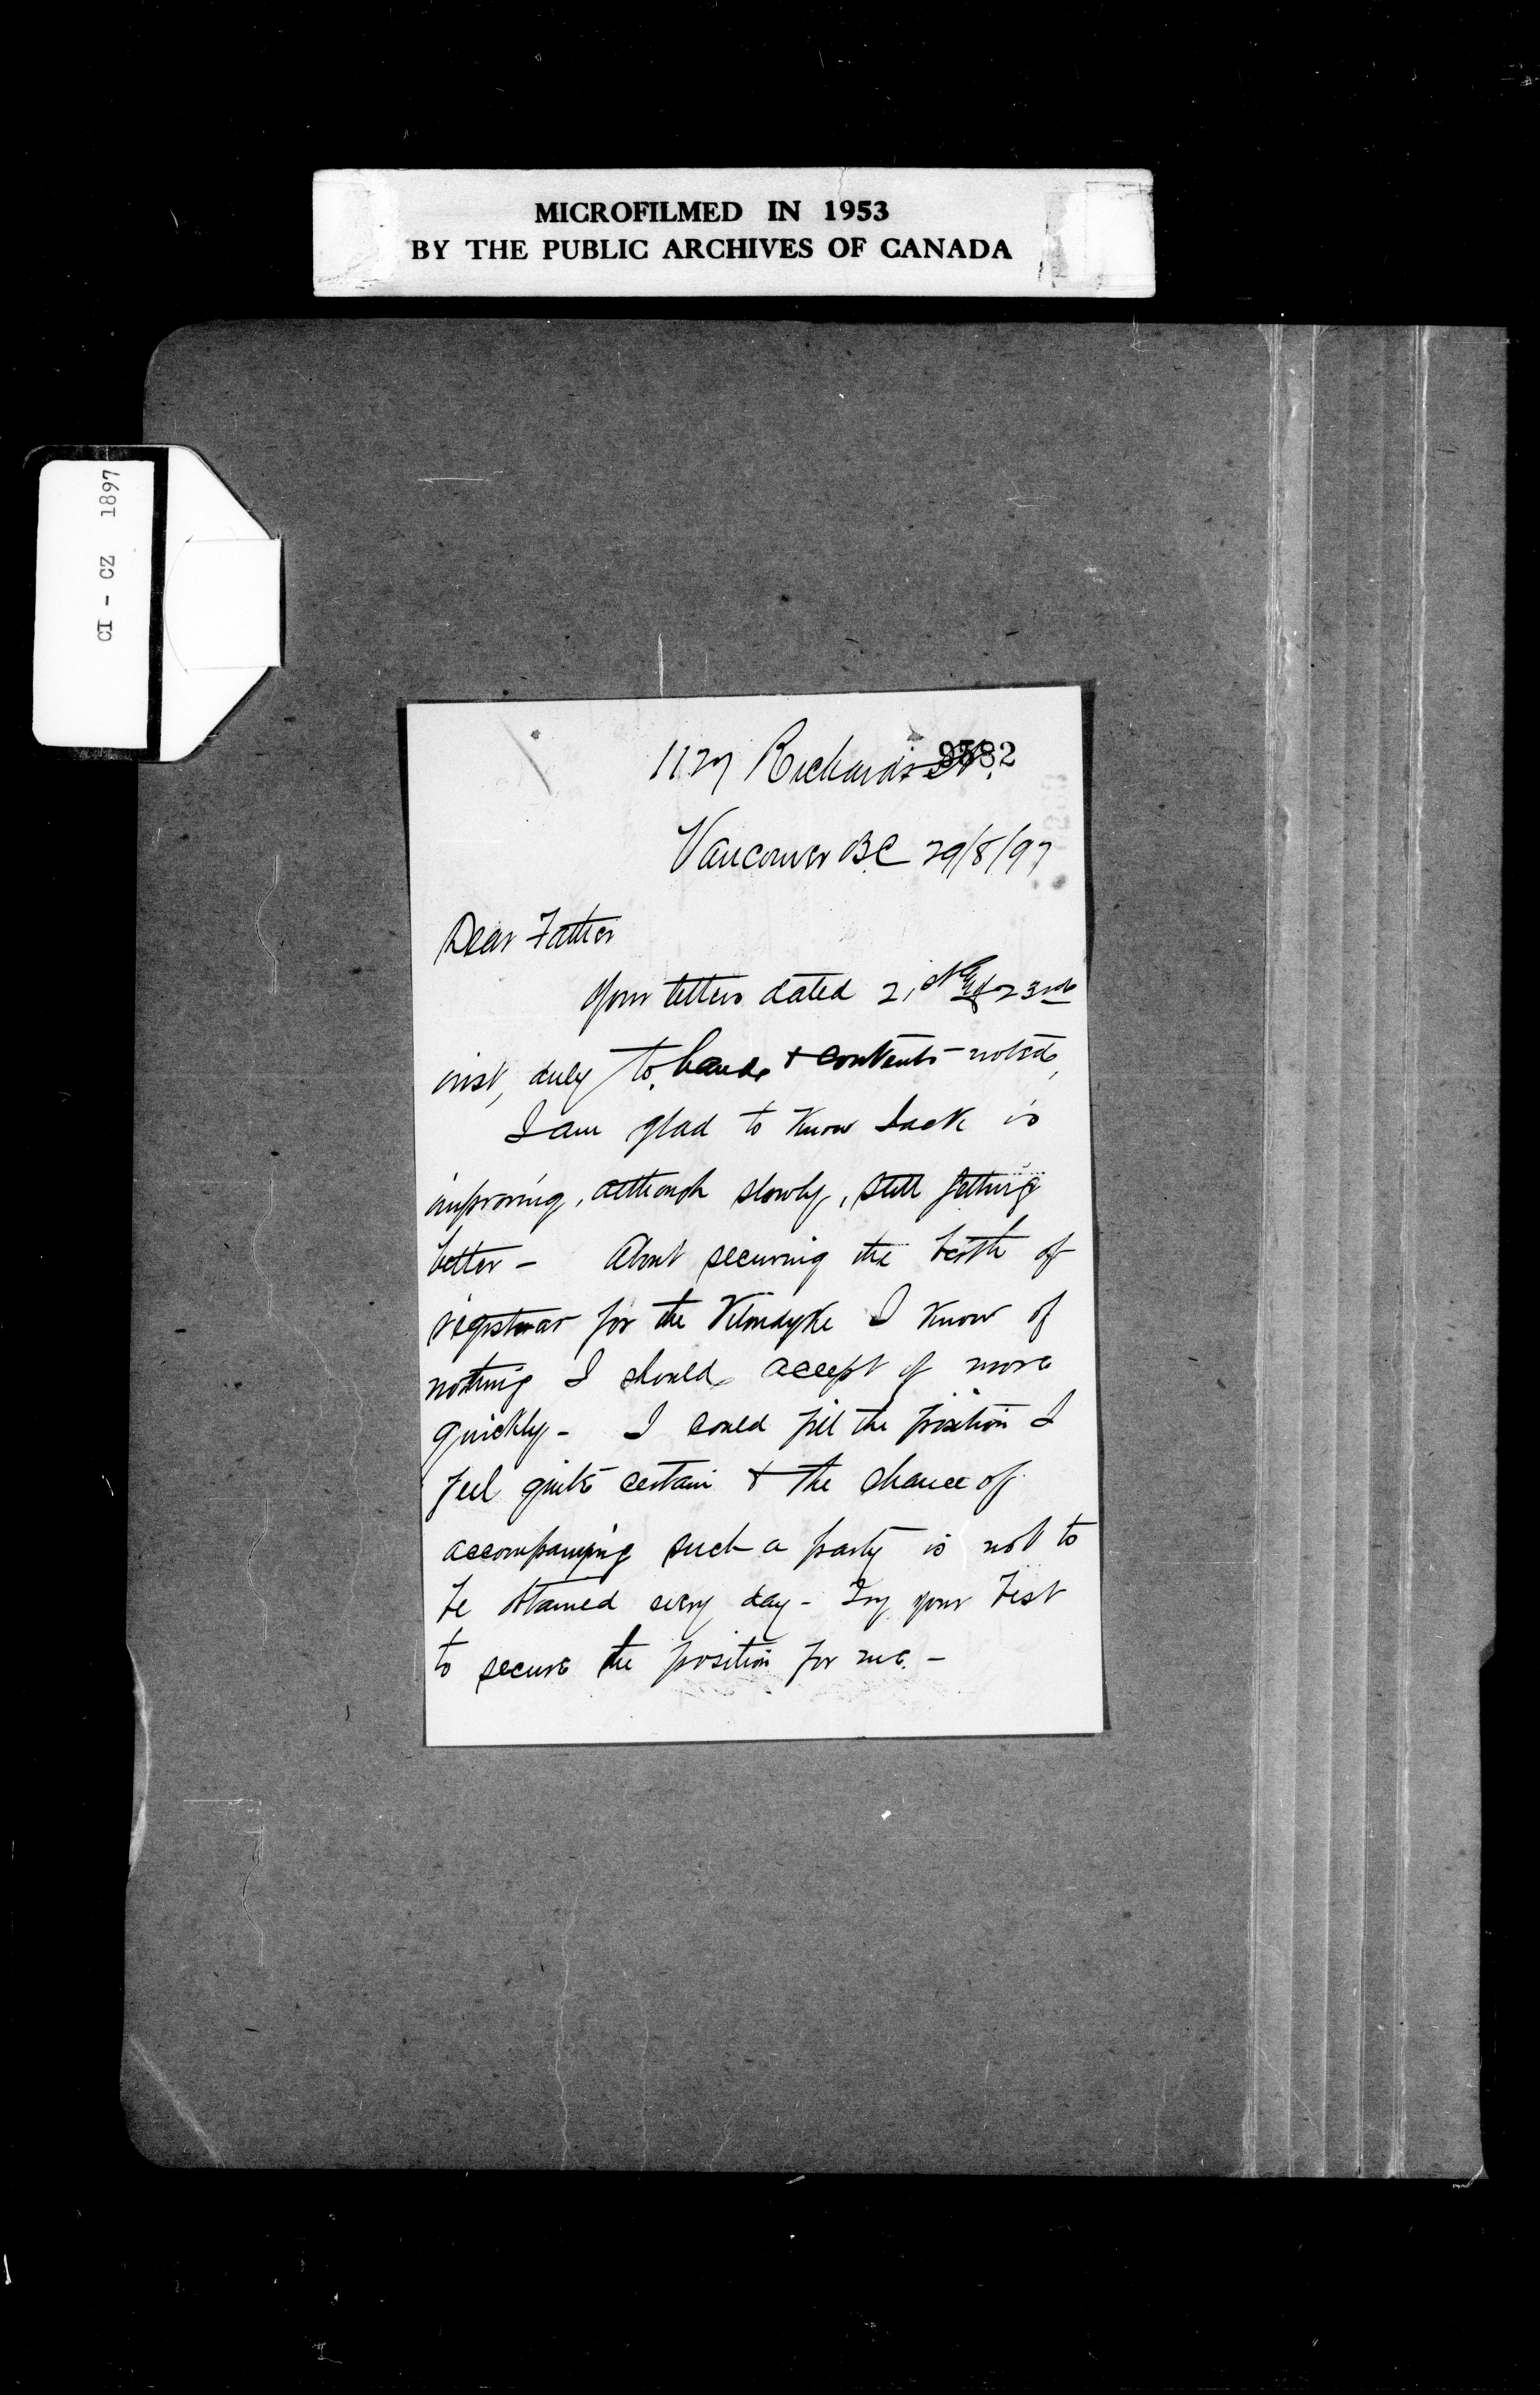 MICROFILMED IN 1953
BY THE PUBLIC ARCHIVES OF CANADA
CI - CZ 1897
9582
1127 Richards St.
Vancouver BC 29/8/97
Dear Father
Your letters dated 21st & 23rd
inst, duly to hand & contents noted,
I am glad to know Jack is
improving, although slowly, still getting
better - About securing the berth of
registrar for the Klondyke I know of
nothing I should accept of more
quickly - I could fill the position I
feel quite certain & the chance of
accompanying such a party is not to
be obtained every day - Try your best
to secure the position for me. -